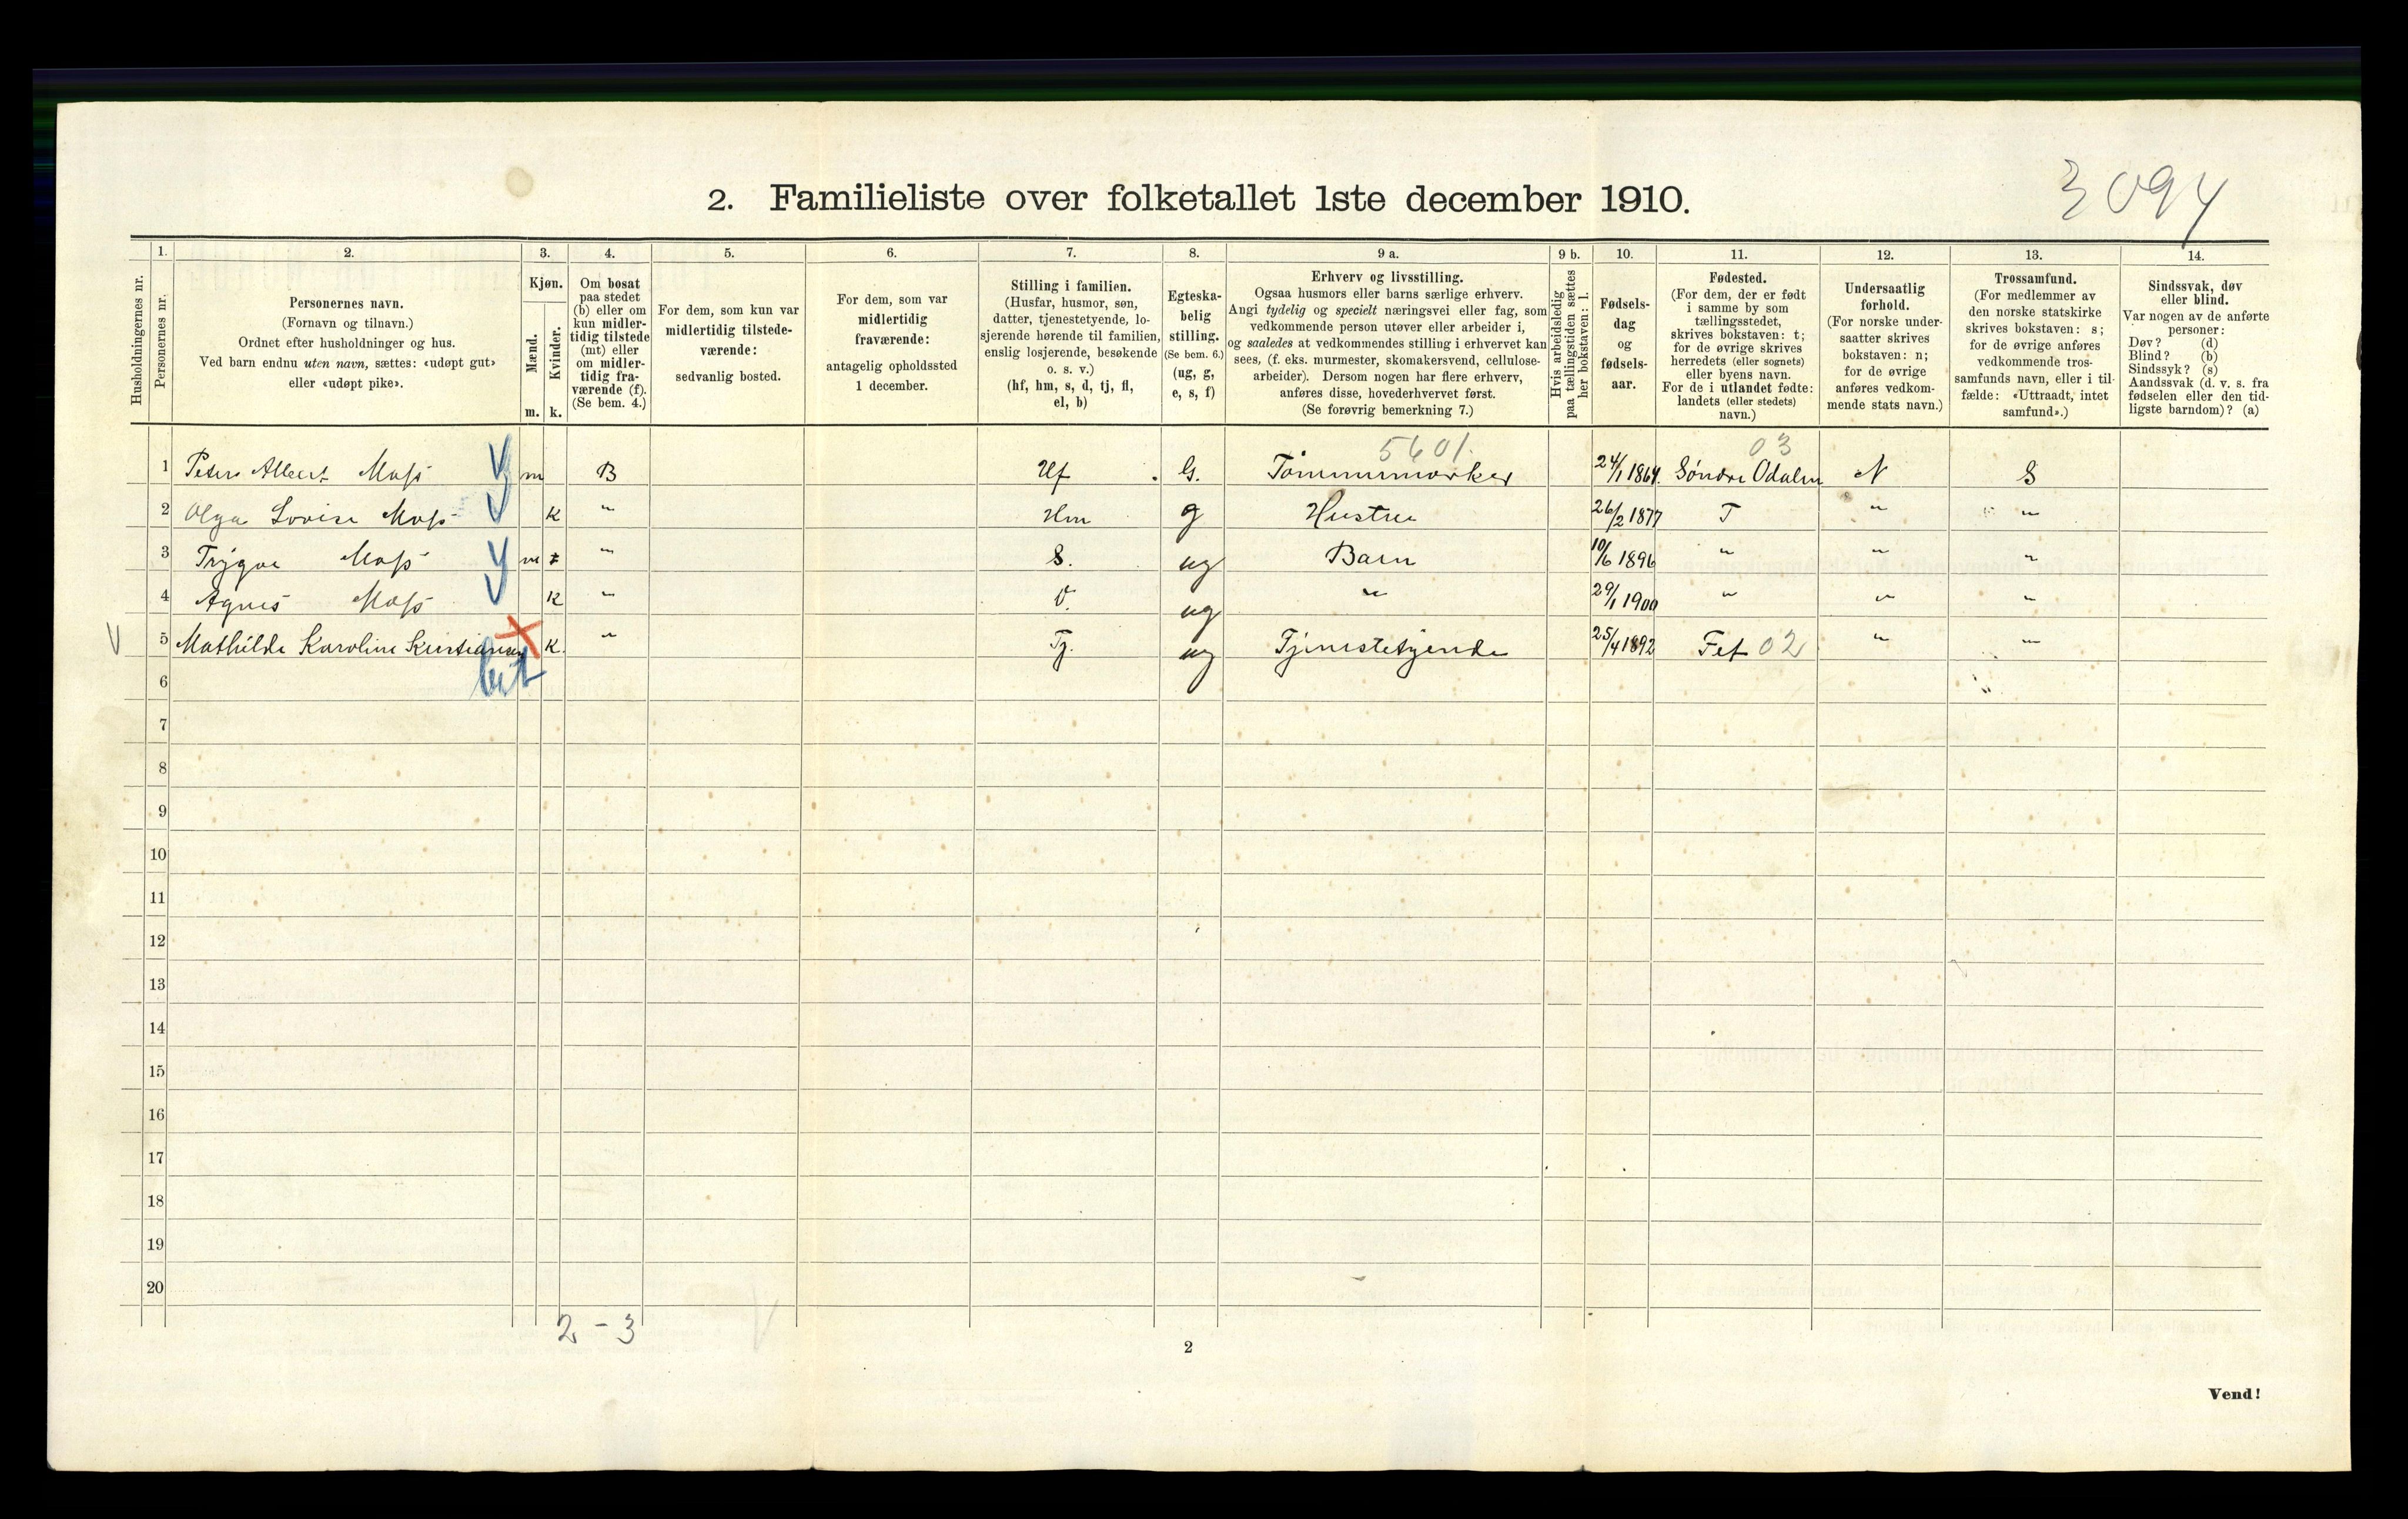 3094
2. Familieliste over folketallet 1ste december 1910.
Husholdningernes nr.
1.
Personernes nr.
2.
Personernes navn.
(Fornavn og tilnavn.)
Ordnet efter husholdninger og hus.
Ved barn endnu uten navn, sættes: «udøpt gut»
eller «udøpt pike».
3.
Kjøn.
Mænd.
Kvinder.
m. k.
4.
Om bosat
paa stedet
(b) eller om
kun midler-
tidig tilstede
(mt) eller
om midler-
tidig fra-
værende (f).
(Se bem. 4.)
5.
For dem, som kun var
midlertidig tilstede-
værende:
sedvanlig bosted.
6.
For dem, som var
midlertidig
fraværende:
antagelig opholdssted
1 december.
7.
Stilling i familien.
(Husfar, husmor, søn,
datter, tjenestetyende, lo-
sjerende hørende til familien,
enslig losjerende, besøkende
o. s. v.)
(hf, hm, s, d, tj, fl,
el, b)
8.
Egteska-
belig
stilling.
(Se bem. 6.)
(ug, g,
e, s, f)
9 a.
Erhverv og livsstilling.
Ogsaa husmors eller barns særlige erhverv.
Angi tydelig og specielt næringsvei eller fag, som
vedkommende person utøver eller arbeider i,
og saaledes at vedkommendes stilling i erhvervet kan
sees, (f. eks. murmester, skomakersvend, cellulose-
arbeider). Dersom nogen har flere erhverv,
anføres disse, hovederhvervet først.
(Se forøvrig bemerkning 7.)
9 b.
Hvis arbeidsledig
paa tællingstiden sættes
her bokstaven: l.
10.
Fødsels-
dag
og
fødsels-
aar.
11.
Fødested.
(For dem, der er født
i samme by som
tællingsstedet,
skrives bokstaven: t;
for de øvrige skrives
herredets (eller sognets)
eller byens navn.
For de i utlandet fødte:
landets (eller stedets)
navn.)
12.
Undersaatlig
forhold.
(For norske under-
saatter skrives
bokstaven: n;
for de øvrige
anføres vedkom-
mende stats navn.)
13.
Trossamfund.
(For medlemmer av
den norske statskirke
skrives bokstaven: s;
for de øvrige anføres
vedkommende tros-
samfunds navn, eller i til-
fælde: «Uttraadt, intet
samfund».)
14.
Sindssvak, døv
eller blind.
Var nogen av de anførte
personer:
Døv? (d)
Blind? (b)
Sindssyk? (s)
Aandssvak (d. v. s. fra
fødselen eller den tid-
ligste barndom)? (a)
5601. 03
1 Peter Albert Moss m B Hf G. Tømmermerker 24/1 1864. Søndre Odalen N S
2 Olga Lovise Moss K " Hm g Hustru 26/2 1877 T " "
3 Trygve Moss m " S. ug Barn 10/6 1896 " " "
4 Agnes Moss K " D. ug " 29/1 1900 " " "
V 5 Mathilde Karoline Kristiansen K. " Tj. ug Tjenestetyende 25/4 1892 Fet 02 " "
6
7
8
9
10
11
12
13
14
15
16
17
18
19
20
2 - 3
2
Vend!